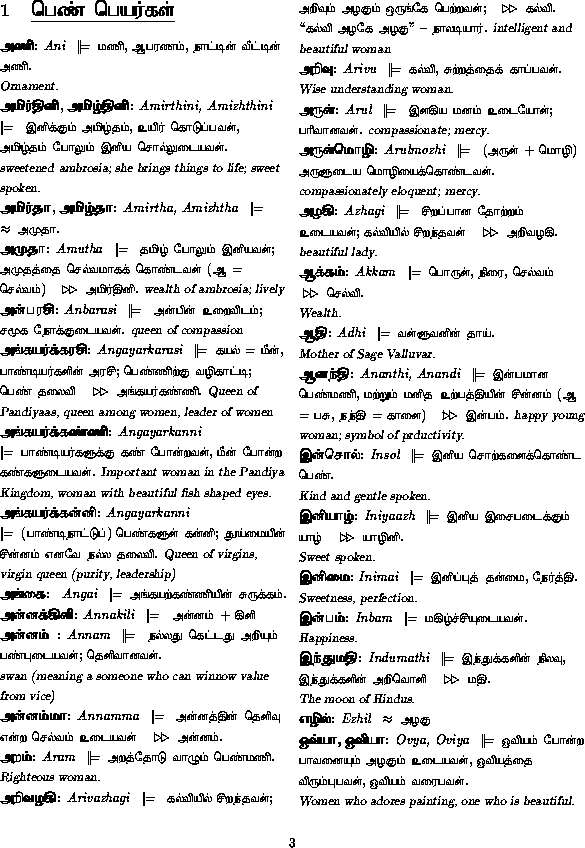 1 பெண் பெயர்கள்
அணி: Ani ||= மணி, ஆபரணம், நாட்டின் வீட்டின்
அணி.
Ornament.
அமிர்தினி, அமிழ்தினி: Amirthini, Amizhthini
|= இனிக்கும் அமிழ்தம், உயிர் கொடுப்பவள்,
அமிழ்தம் போலும் இனிய சொல்லுடையவள்.
sweetened ambrosia; she brings things to life; sweet
spoken.
அமிர்தா, அமிழ்தா: Amirtha, Amizhtha |=
≈ அமுதா.
அமுதா: Amutha |= தமிழ் போலும் இனியவள்;
அமுதத்தை செல்வமாகக் கொண்டவள் (ஆ =
செல்வம்) ▷▷ அமிர்தினி. wealth of ambrosia; lively
அன்பரசி: Anbarasi ||= அன்பின் உறைவிடம்;
சமூக நோக்குடையவள். queen of compassion
அங்கயர்க்கரசி: Angayarkarasi ||= கயல் = மீன்,
பாண்டியர்களின் அரசி; பெண்ணிற்கு வழிகாட்டி;
பெண் தலைவி ▷▷ அங்கயர்கண்ணி. Queen of
Pandiyaas, queen among women, leader of women
அங்கயர்க்கண்ணி: Angayarkanni
|= பாண்டியர்களுக்கு கண் போன்றவள், மீன் போன்ற
கண்களுடையவள். Important woman in the Pandiya
Kingdom, woman with beautiful fish shaped eyes.
அங்கயர்க்கன்னி: Angayarkanni
|= (பாண்டிநாட்டுப்) பெண்களுள் கன்னி; தூய்மையின்
சின்னம் எனவே நல்ல தலைவி. Queen of virgins,
virgin queen (purity, leadership)
அங்கை: Angai |= அங்கயற்கண்ணியின் சுருக்கம்.
அன்னக்கிளி: Annakili |= அன்னம் + கிளி
அன்னம் : Annam ||= நல்லது கெட்டது அறியும்
பண்புடையவள்; தெளிவானவள்.
swan (meaning a someone who can winnow value
from vice)
அன்னம்மா: Annamma |= அன்னத்தின் தெளிவு
என்ற செல்வம் உடையவள் ▷▷ அன்னம்.
அறம்: Aram ||= அறத்தோடு வாழும் பெண்மணி.
Righteous woman.
அறிவழகி: Arivazhagi |= கல்வியில் சிறந்தவள்;
அறிவும் அழகும் ஒருங்கே பெற்றவள்; ▷▷ கல்வி.
“கல்வி அழகே அழகு” – நாலடியார். intelligent and
beautiful woman
அறிவு: Arivu ||= கல்வி, சுற்றத்தைக் காப்பவள்.
Wise understanding woman.
அருள்: Arul ||= இளகிய மனம் உடையோள்;
பரிவானவள். compassionate; mercy.
அருள்மொழி: Arulmozhi ||= (அருள் + மொழி)
அருளுடைய மொழியைக்கொண்டவள்.
compassionately eloquent; mercy.
அழகி: Azhagi ||= சிறப்பான தோற்றம்
உடையவள்; கல்வியில் சிறந்தவள் ▷▷ அறிவழகி.
beautiful lady.
ஆக்கம்: Akkam |= பொருள், நிரை, செல்வம்
▷▷ செல்வி.
Wealth.
ஆதி: Adhi |= வள்ளுவனின் தாய்.
Mother of Sage Valluvar.
ஆனந்தி: Ananthi, Anandi ||= இன்பமான
பெண்மணி, மற்றும் மனித உற்பத்தியின் சின்னம் (ஆ
= பசு, நந்தி = காளை) ▷▷ இன்பம். happy young
woman; symbol of prductivity.
இன்சொல்: Insol ||= இனிய சொற்களைக்கொண்ட
பெண்.
Kind and gentle spoken.
இனியாழ்: Iniyaazh ||= இனிய இசைபடைக்கும்
யாழ் ▷▷ யாழினி.
Sweet spoken.
இனிமை: Inimai |= இனிப்புத் தன்மை, நேர்த்தி.
Sweetness, perfection.
இன்பம்: Inbam |= மகிழ்ச்சியுடையவள்.
Happiness.
இந்துமதி: Indumathi ||= இந்துக்களின் நிலவு,
இந்துக்களின் அறிவொளி ▷▷ மதி.
The moon of Hindus.
எழில்: Ezhil ≈ அழகு
ஒவ்யா, ஓவியா: Ovya, Oviya ||= ஓவியம் போன்ற
பாவனையும் அழகும் உடையவள், ஓவியத்தை
விரும்புபவள், ஓவியம் வரைபவள்.
Women who adores painting, one who is beautiful.
3